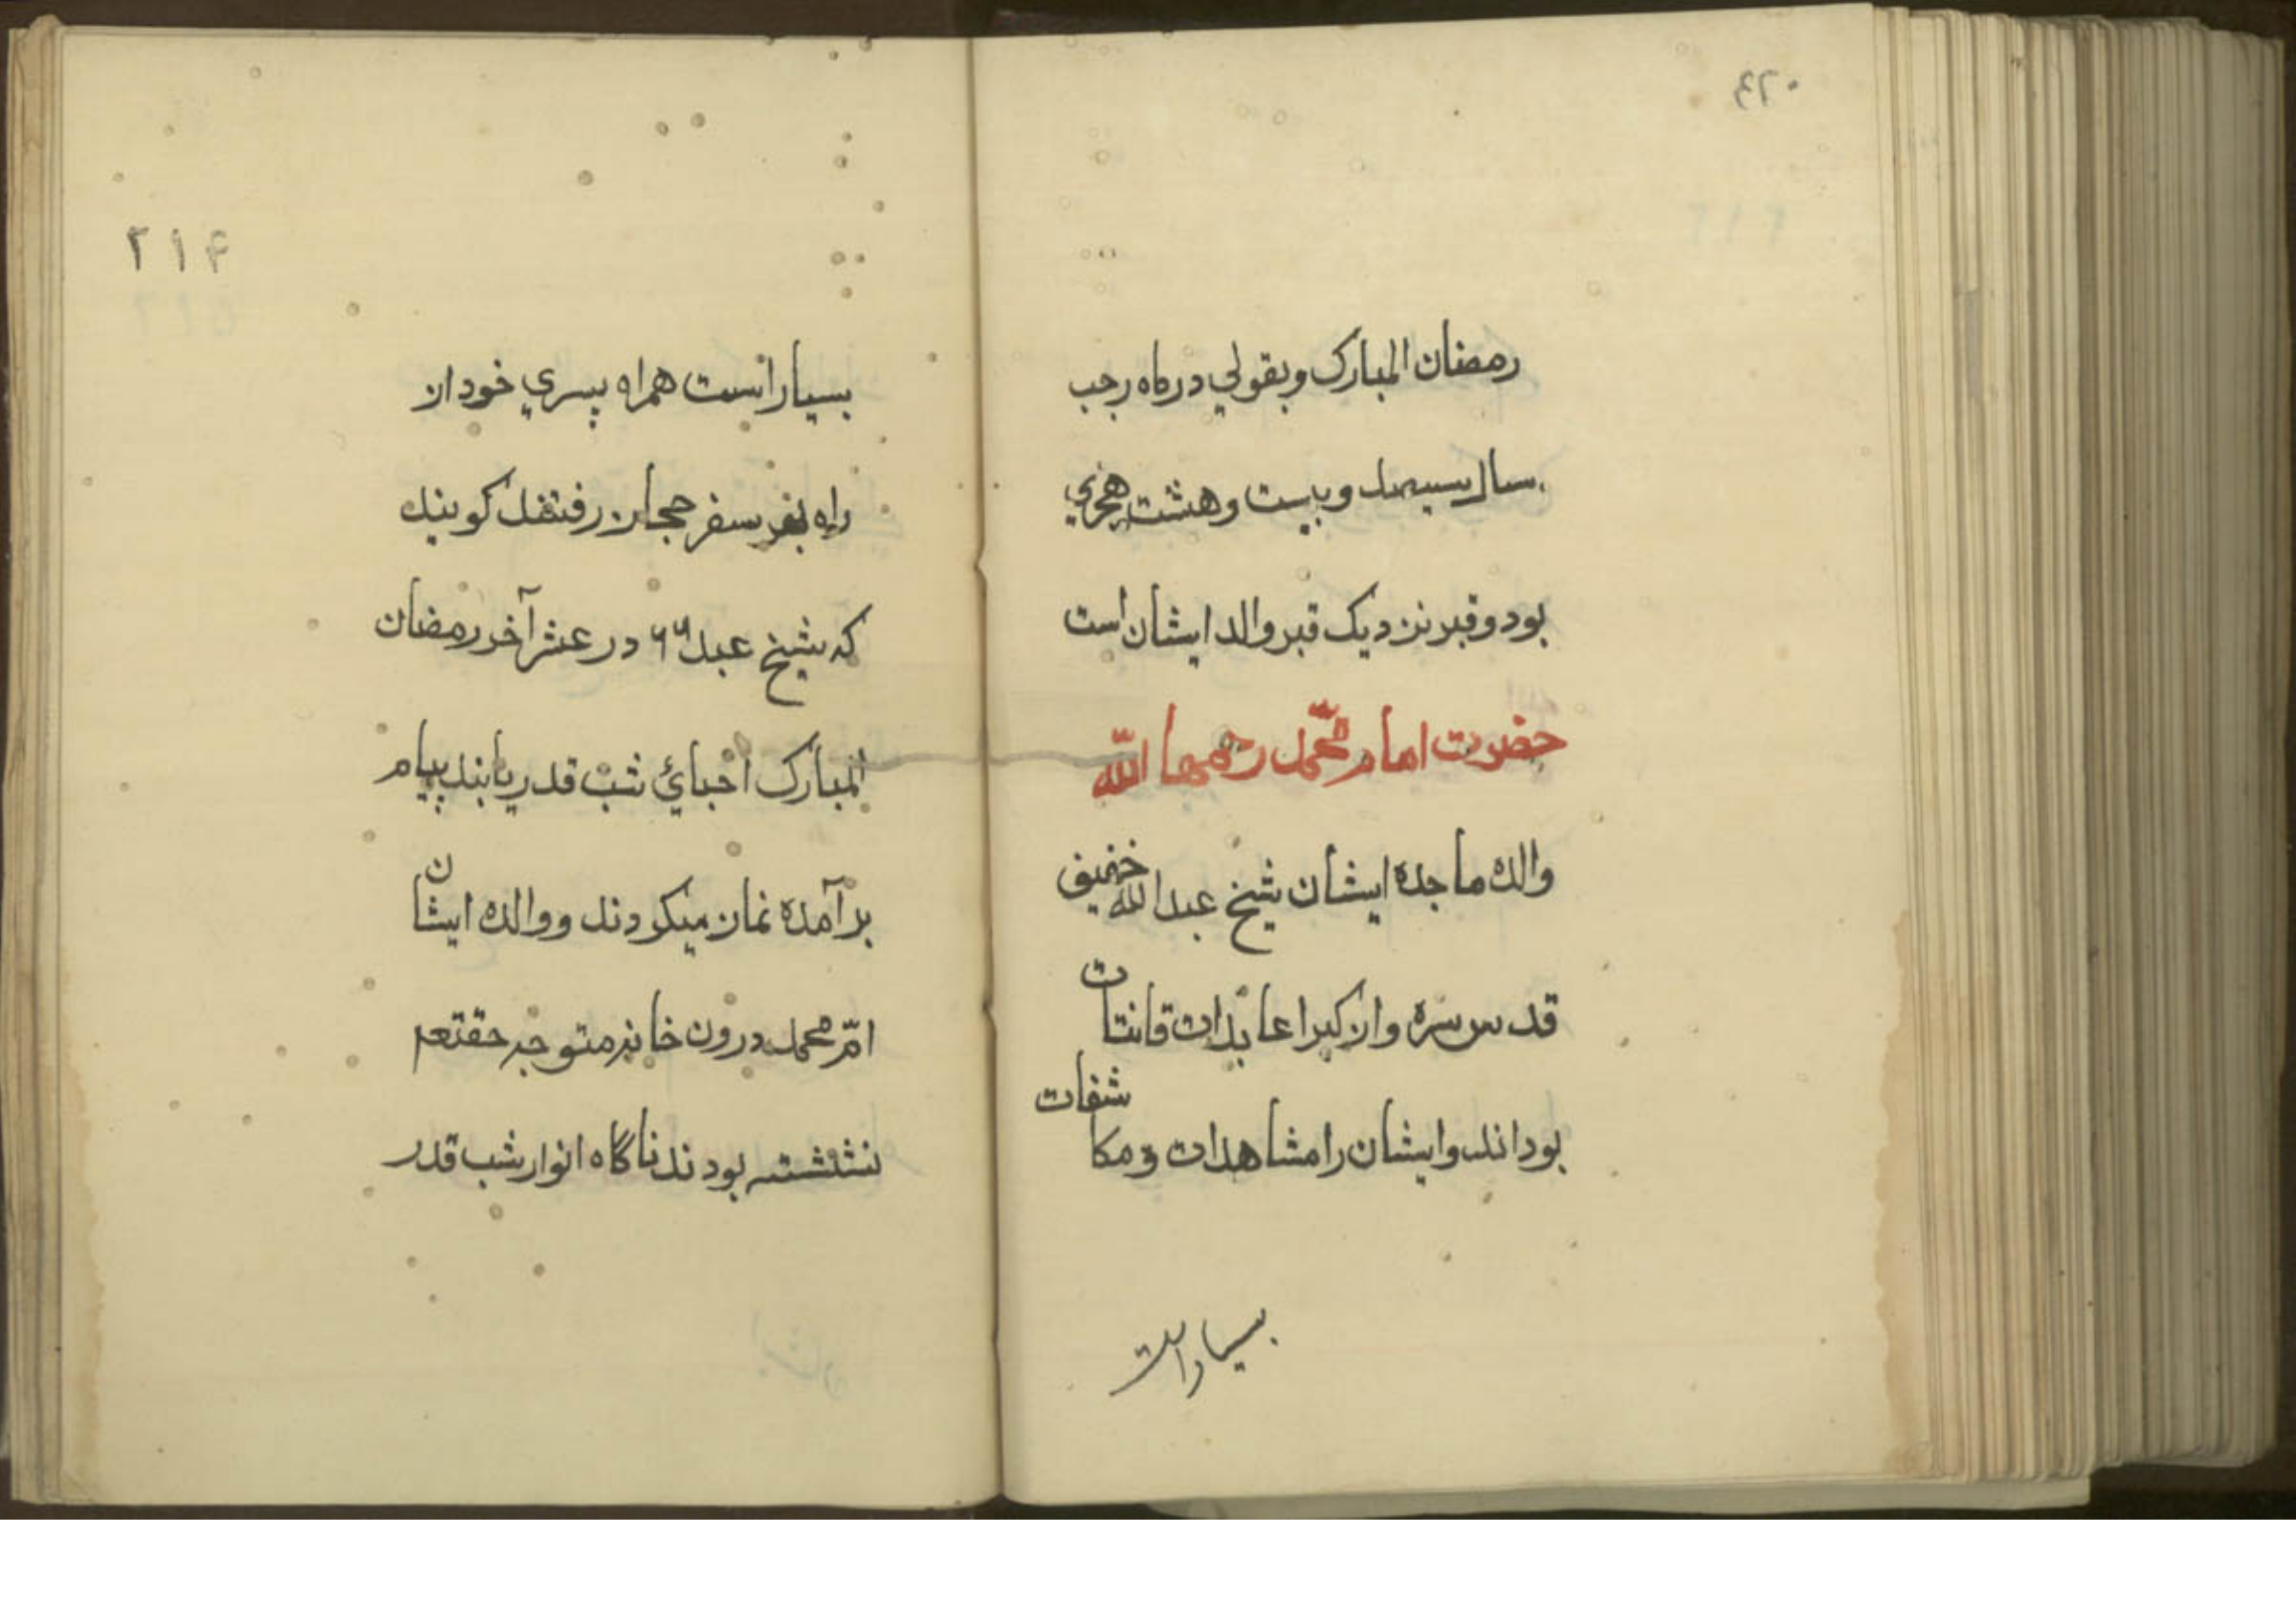 ٤٢٠
رمضان المبارک وبقولي درماه رجب
سال سیصد وبیست وهشت هجري
بود وقبر نزدیک قبر والد ایشان است
حضرت امام محمّد رحمها اللّه
والده ماجده ایشان شیخ عبد الله خفیف
قدس سره واز کبرا عابدات قانتات
بوداند وایشان را مشاهدات ومکاشفات
بسیار است
٢١۴
بسیار است همراه پسري خود از
راه بسفر حجاز رفتند کویند
که شیخ عبد در عشر آخر رمضان
المبارک احیائ شب قدر یابند بپام
برآمده نماز میکردند ووالده ایشان
امّ محمد درون خانه متوجه حقتعم
ننشسته بودند ناگاه انوار شب قدر